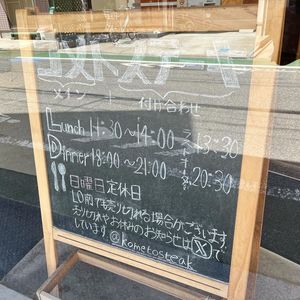 コメトステーキ
メイン + 付け合わせ
Lunch 11:30～14:00 ラストオーダー 13:30
Dinner 18:00～21:00 20:30
日曜日定休日
L.O前でも売り切れる場合がございます
売り切れやお休みのお知らせは X で
しています @kometosteak